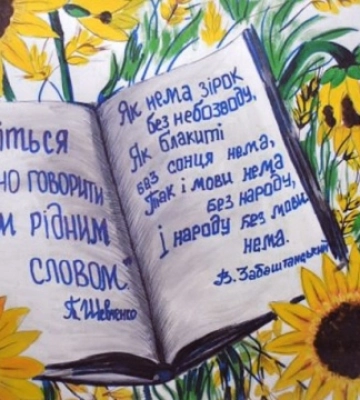 іться
но говорити
и рідним
словом."
Т. Шевченко
Як нема зірок
без небозводу,
Як блакиті
без сонця нема,
Так і мови нема
без народу,
І народу без мови
нема.
В. Забаштанський